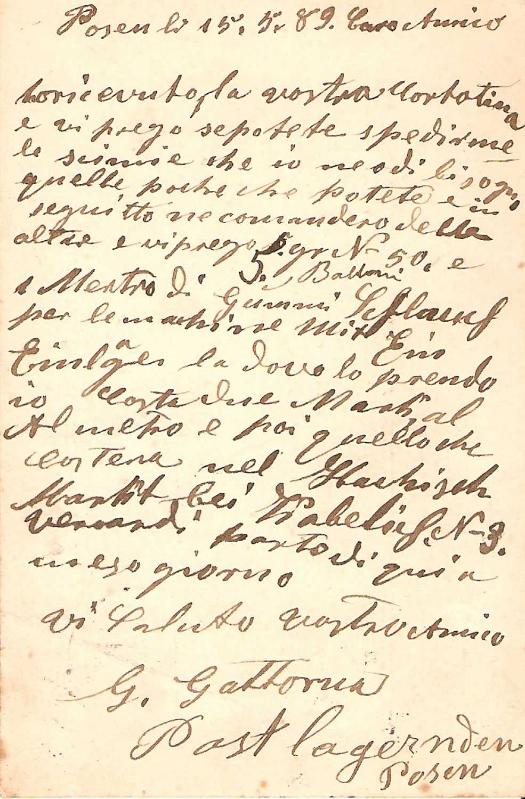 Posen li 15. 5. 89. Caro Amico
ho ricevuto, la vostra Cortolina
e vi prego se potete spedirme
le simie che io ne o di bisogno
quelle poche che potete e in
seguitto ne comandero della
altre e vi prego 5. gr N– 50. e
5. Balloni
1 Mertro di Gummi Schlauf
per le machine mit Ein
la dove lo prendo
io Costa due Mark, al
Al metro e poi quello che
Costera nel
bei N– 3.
Verardi parto di qui a
meso giorno
vi Saluto vostro Amico
G. Gattorna
Post lagernden
Posen